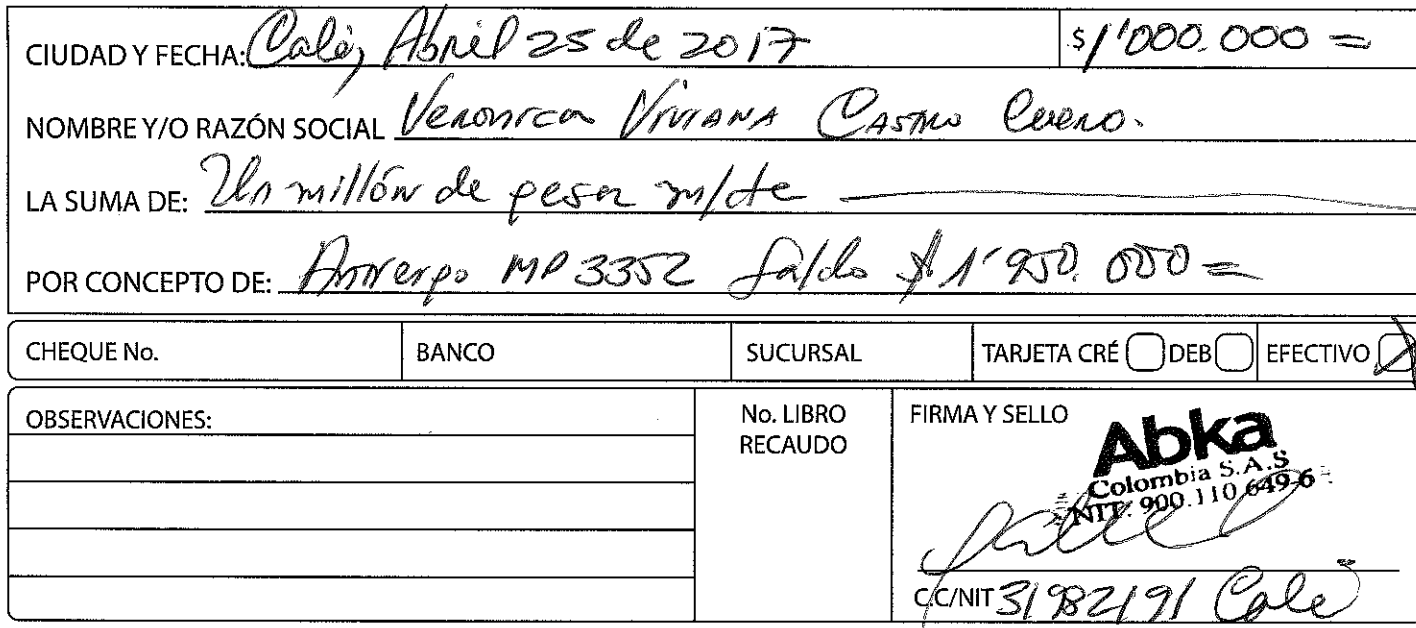 CIUDAD Y FECHA: Cali, Abril 25 de 2017 $1'000.000=
NOMBRE Y/O RAZÓN SOCIAL Veronica Viviana Castro Cuero.
LA SUMA DE: Un millón de pesos m/cte
POR CONCEPTO DE: MP 3352 Saldo $1'950.000=
CHEQUE No. BANCO SUCURSAL TARJETA CRÉ DEB EFECTIVO X
OBSERVACIONES: No. LIBRO RECAUDO FIRMA Y SELLO
Abka
Colombia S.A.S
NIT: 900.110.649-6
C.C/NIT 31982191 Cali